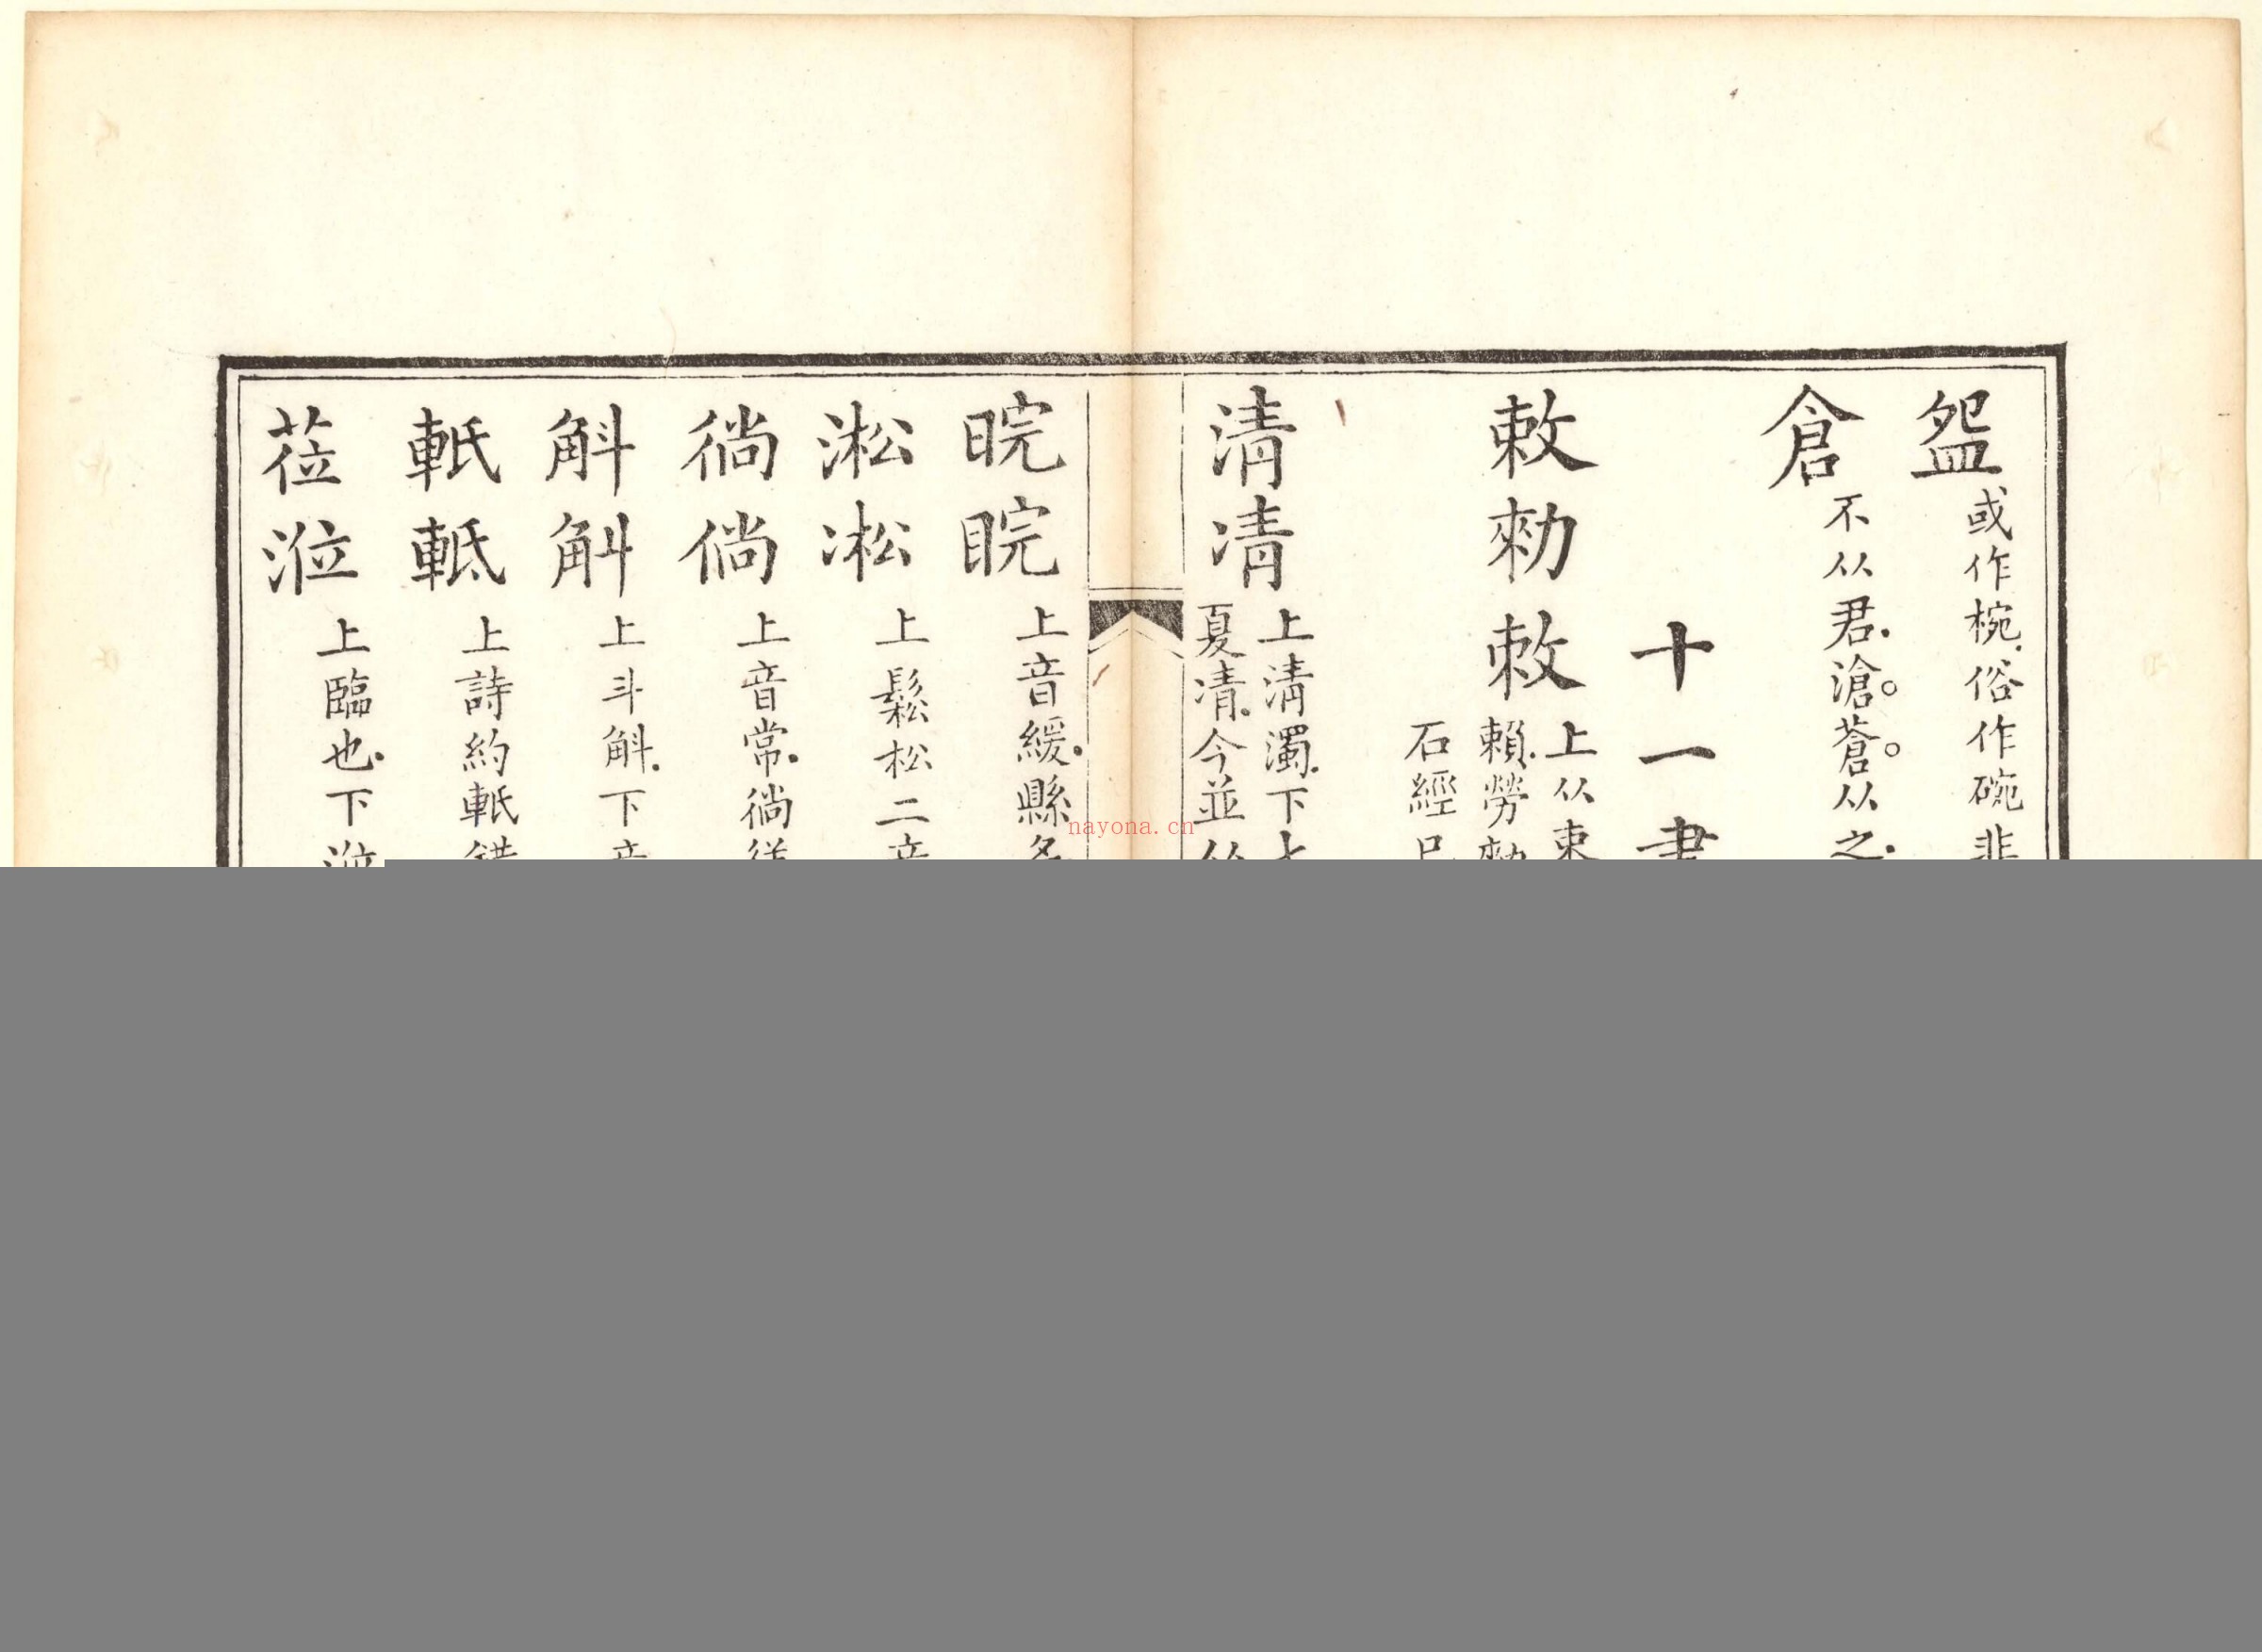 盌 或作椀俗作碗非
倉 不从君滄蒼从之
十一畫
敕勑敇 上从束
賴勞勑
石經
清凊 上清濁下
夏凊今並
晥睆 上音緩縣名
淞凇 上鬆松二音
徜倘 上音常徜徉
斛斜 上斗斛下音
軝軧 上詩約軝錯
莅涖 上臨也下涖
nayona.cn